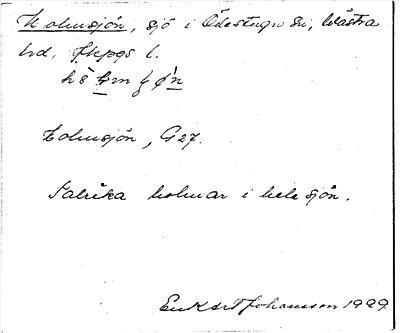 Holmsjön, sjö i Ödestugu sn, Västra
hrd, Jkpgs l.
Holmsjön, G27.
Talrika holmar i hela sjön.
Johansson 1929.